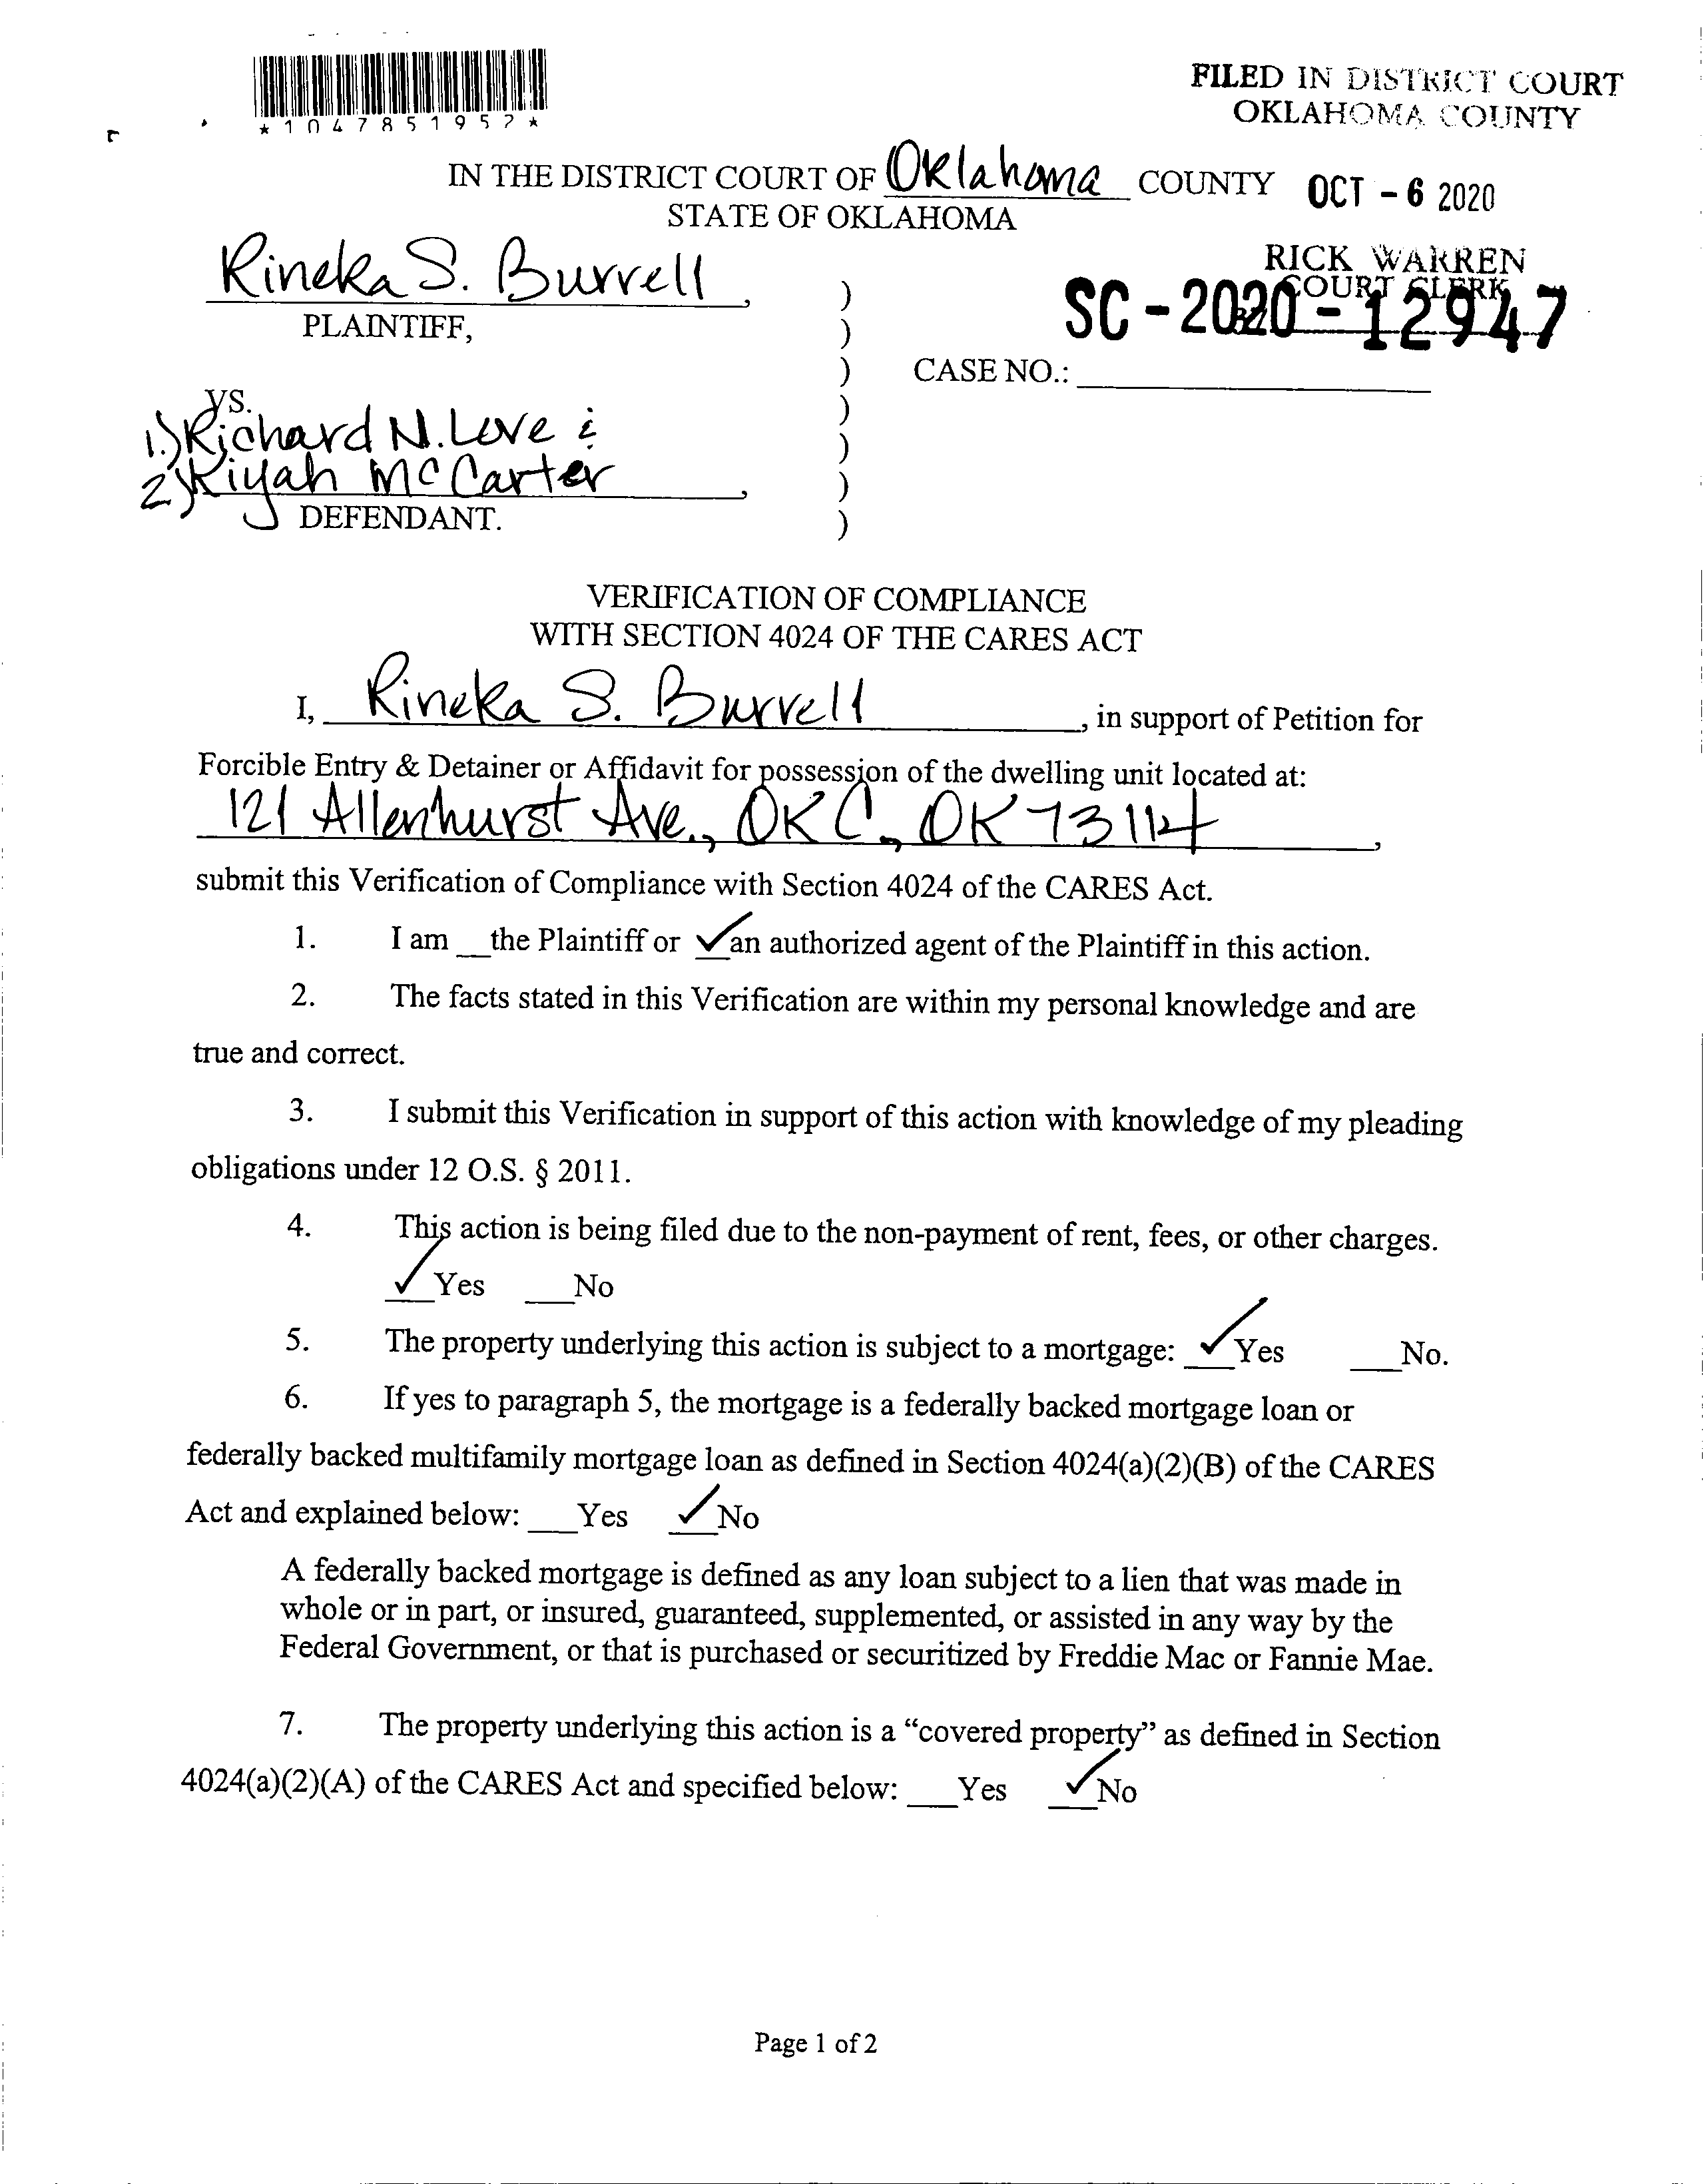 *1047851957*
FILED IN DISTRICT COURT
OKLAHOMA COUNTY
IN THE DISTRICT COURT OF Oklahoma COUNTY
OCT - 6 2020
STATE OF OKLAHOMA
RICK WARREN
COURT CLERK
SC - 2020 - 12947
Rineka S. Burrell,
PLAINTIFF,
CASE NO.:
vs.
1.) Richard N. Love &
2) Kiyah McCarter,
DEFENDANT.
)
)
)
)
)
)
)
VERIFICATION OF COMPLIANCE
WITH SECTION 4024 OF THE CARES ACT
I, Rineka S. Burrell, in support of Petition for
Forcible Entry & Detainer or Affidavit for possession of the dwelling unit located at:
121 Allenhurst Ave., OKC, OK 73114,
submit this Verification of Compliance with Section 4024 of the CARES Act.
1. I am __the Plaintiff or ✓an authorized agent of the Plaintiff in this action.
2. The facts stated in this Verification are within my personal knowledge and are
true and correct.
3. I submit this Verification in support of this action with knowledge of my pleading
obligations under 12 O.S. § 2011.
4. This action is being filed due to the non-payment of rent, fees, or other charges.
✓Yes ___No
5. The property underlying this action is subject to a mortgage: ✓Yes ___No.
6. If yes to paragraph 5, the mortgage is a federally backed mortgage loan or
federally backed multifamily mortgage loan as defined in Section 4024(a)(2)(B) of the CARES
Act and explained below: ___Yes ✓No
A federally backed mortgage is defined as any loan subject to a lien that was made in
whole or in part, or insured, guaranteed, supplemented, or assisted in any way by the
Federal Government, or that is purchased or securitized by Freddie Mac or Fannie Mae.
7. The property underlying this action is a “covered property” as defined in Section
4024(a)(2)(A) of the CARES Act and specified below: ___Yes ✓No
Page 1 of 2